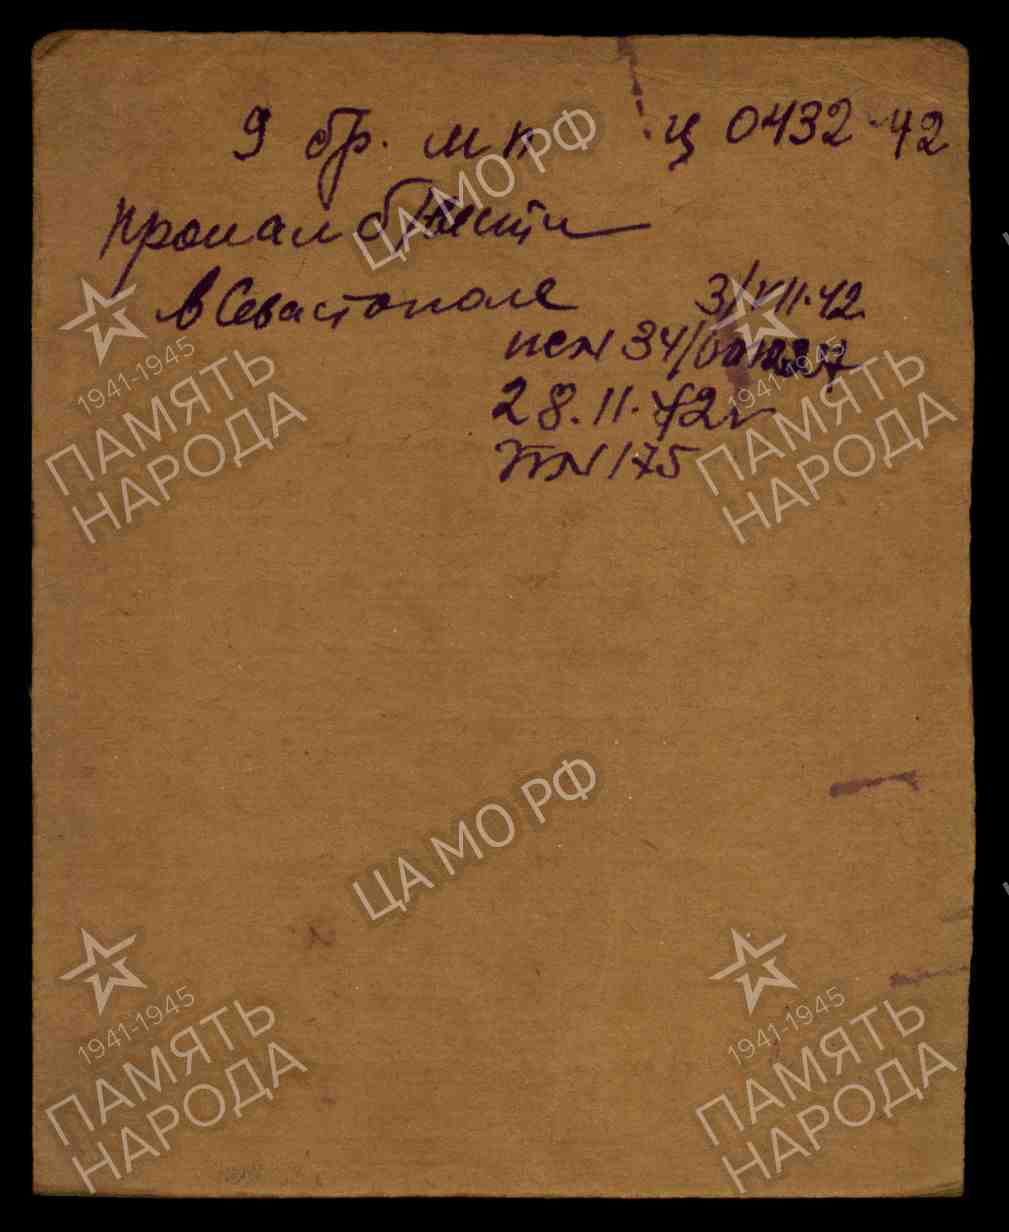 9 бр. мп ц 0432-42
пропал б/вести
в Севастополе 3/VII-42
исх 34/
28.11.42г
N 175
ЦА МО РФ
1941-1945
ПАМЯТЬ
НАРОДА
1941-1945
ПАМЯТЬ
НАРОДА
ЦА МО РФ
1941-1945
ПАМЯТЬ
НАРОДА
1941-1945
ПАМЯТЬ
НАРОДА